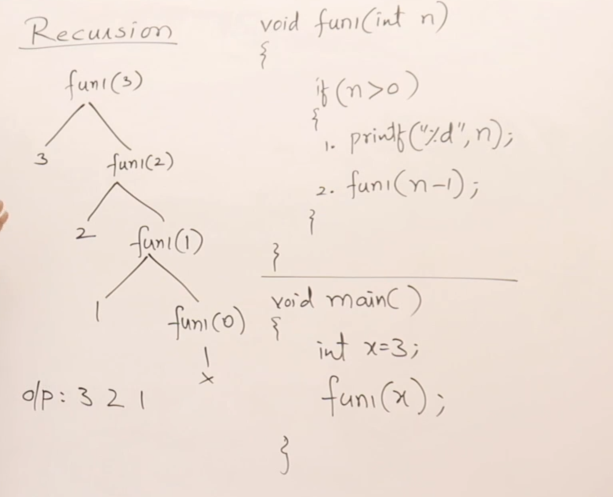 Recursion
fun1(3)
3 fun1(2)
2 fun1(1)
1 fun1(0)
x
o/p: 3 2 1
void fun1(int n)
{
if(n>0)
{
1. printf("%d",n);
2. fun1(n-1);
}
}
void main()
{
int x=3;
fun1(x);
}